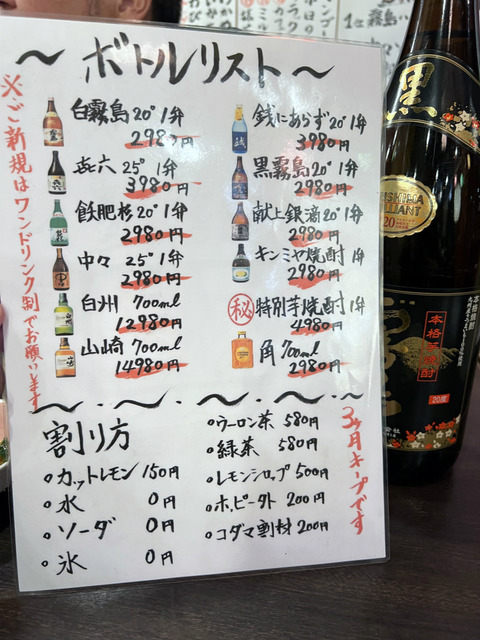 〜ボトルリスト〜
※ご新規はワンドリンク制でお願いします
白霧島20°1升
2980円
㐂六25°1升
3980円
飫肥杉20°1升
2980円
中々25°1升
2980円
白州700ml
12980円
山崎700ml
14980円
銭にあらず20°1升
3980円
黒霧島20°1升
2980円
献上銀滴20°1升
2980円
キンミヤ焼酎1升
2980円
㊙特別芋焼酎1升
4980円
角700ml
2980円
割り方
・カットレモン150円
・水 0円
・ソーダ 0円
・氷 0円
・ウーロン茶 580円
・緑茶 580円
・レモンシロップ500円
・ホッピー外 200円
・コダマ割材 200円
3ヶ月キープです
黒
20
本格芋焼酎
20度
1位 霧島